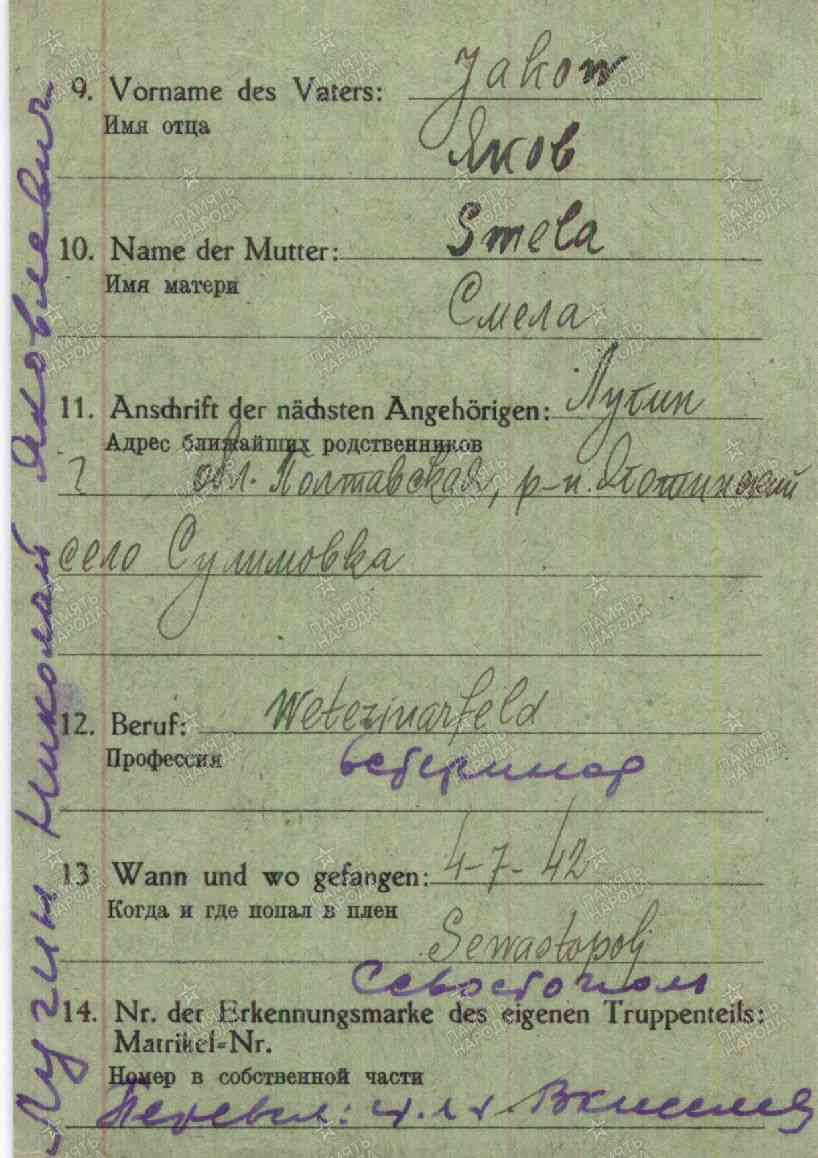 9. Vorname des Vaters: Jakow
Имя отца
Яков
10. Name der Mutter: Smela
Имя матери
Смела
11. Anschrift der nächsten Angehörigen: Лукин
Адрес ближайших родственников
? обл. Полтавская, р-н.
село Сулимовка
12. Beruf: Weterinarfeld
Профессия
ветеринар
13 Wann und wo gefangen: 4-7-42
Когда и где попал в плен
Sewastopolj
Севостополь
14. Nr. der Erkennungsmarke des eigenen Truppenteils:
Matrikel-Nr.
Номер в собственной части
Перевел:
Лугин Николай Яковлевич
ПАМЯТЬ НАРОДА